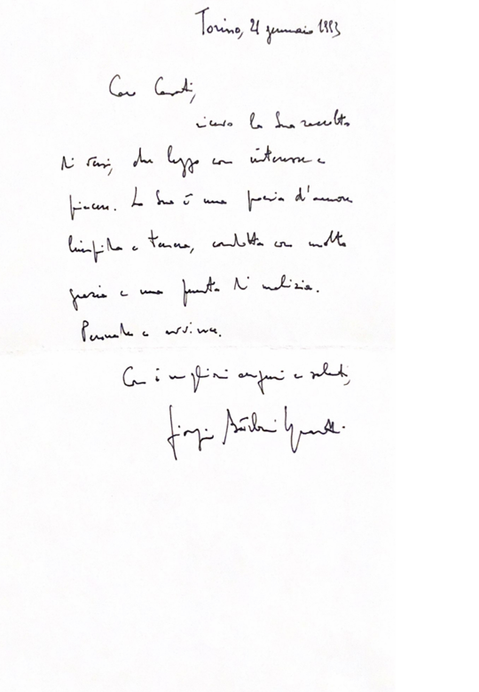 Torino, 21 gennaio 1993
Caro
ricevo la Sua raccolta
di versi, che leggo con interesse e
piacere. La Sua è una poesia d'amore
limpida e tenera, condotta con molta
grazia e una punta di malizia.
Persuade e avvince.
Con i migliori auguri e saluti,
Giorgio Bàrberi Squarotti